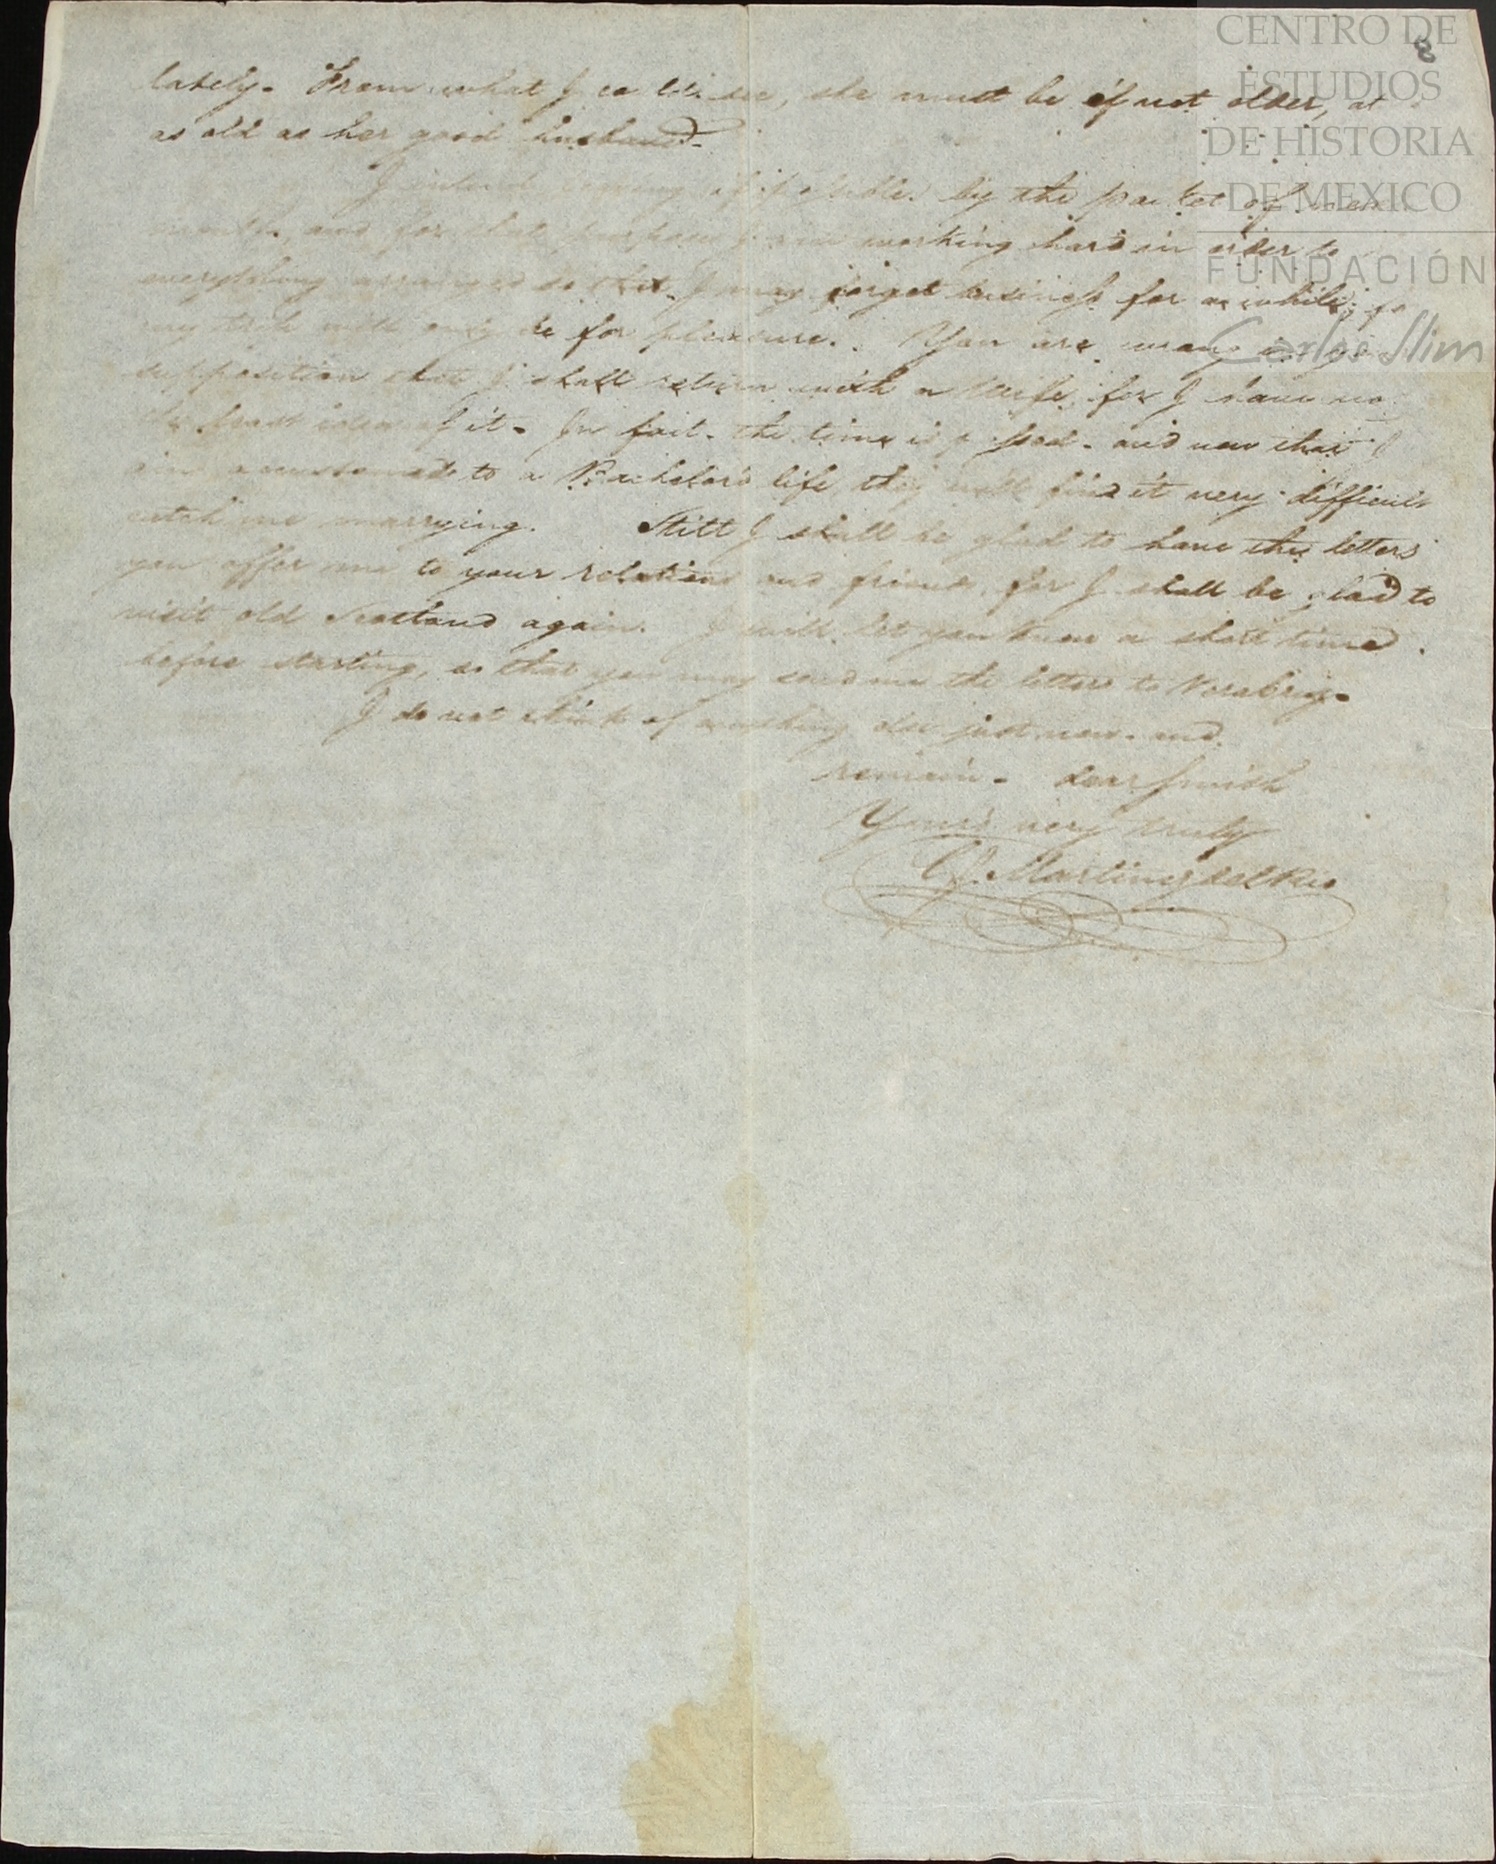 8
CENTRO DE
ESTUDIOS
DE HISTORIA
DE MEXICO
FUNDACIÓN
Carlos Slim
lately. From what I could see, she must be if not older, at
as old as her good husband.
I intend leaving if possible by the packet of
month, and for that purpose I am working hard in order to
everything arranged so that I may forget business for a while; for
my trip will only be for pleasure. You are wrong in your
supposition that I shall return with a Wife, for I have no
the least idea of it. In fact the time is passed and now that I
am accustomed to a Bachelor's life they will find it very difficult
catch me marrying. Still I shall be glad to have the letters
you offer me to your relations and friends, for I shall be glad to
visit old Scotland again. I will let you know a short time
before starting, so that you may send me the letters to Veracruz.
I do not think of anything else just now and
remain dear Smith
Yours very truly
Martinez del Rio